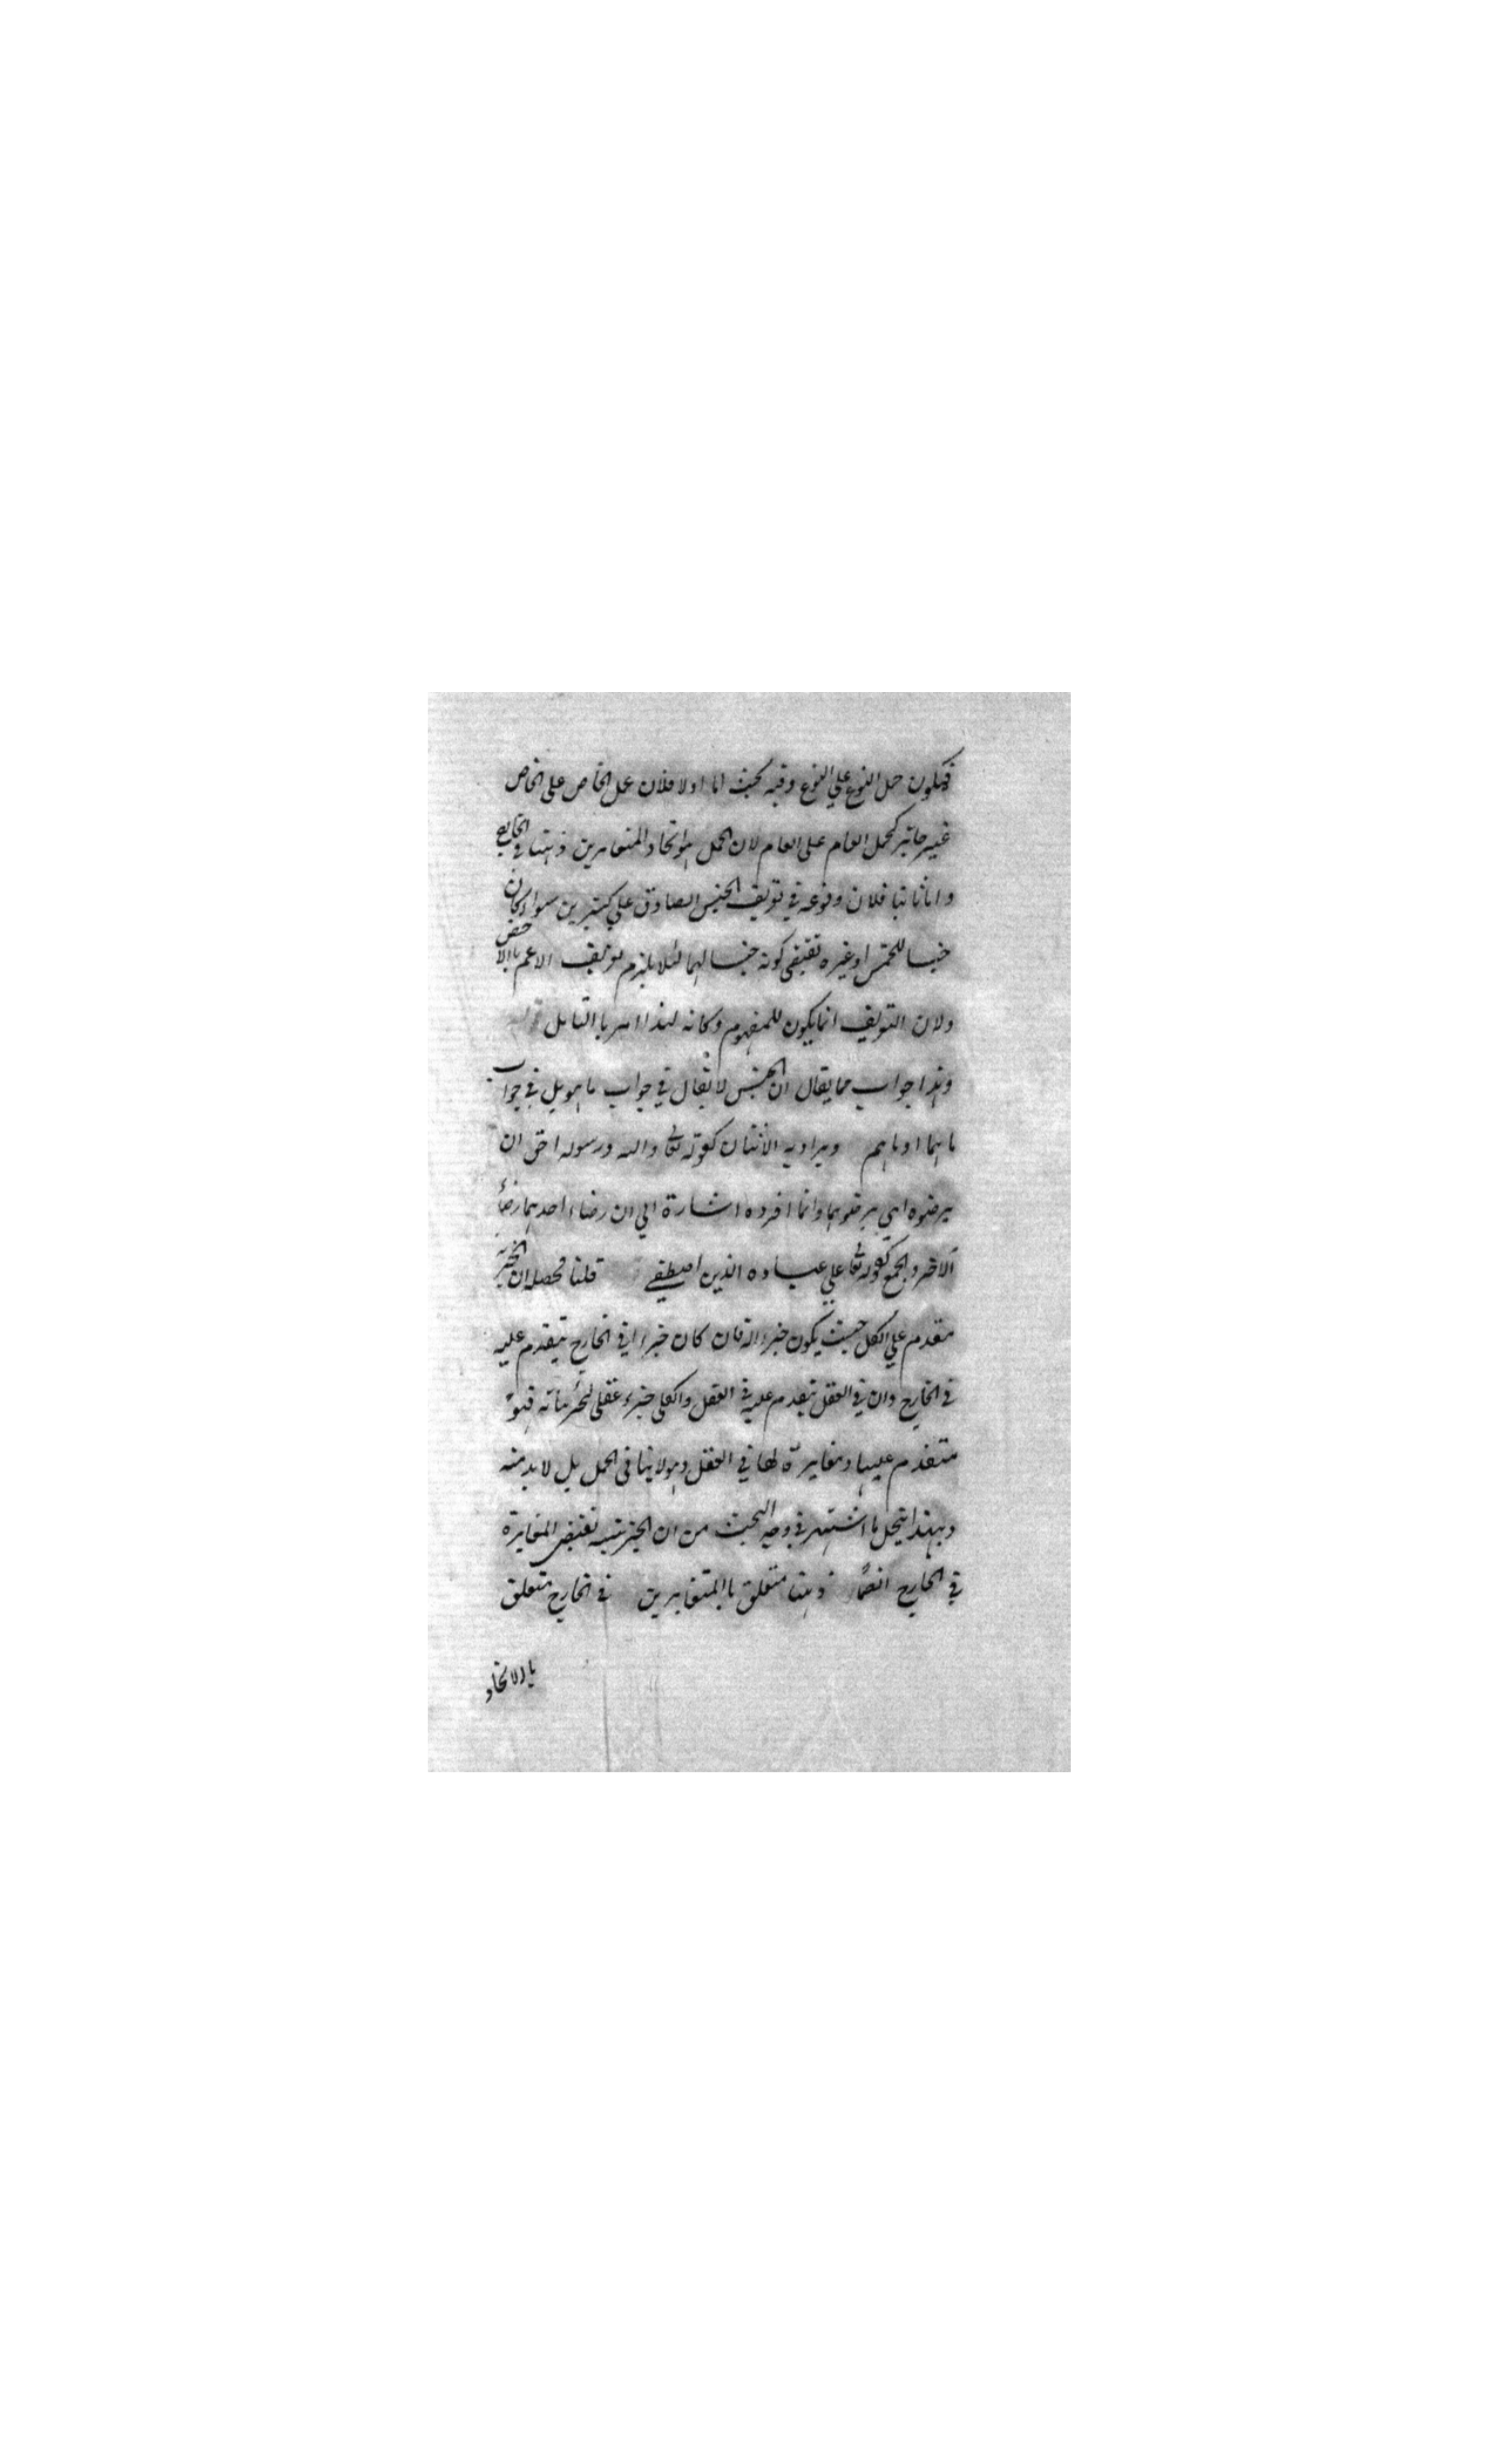 فيكون حمل النوع على النوع وفيه بحث اما اولا فلان حمل الخاص على الخاص
غير جائز كحمل العام على العام لان الحمل هو اتحاد المتغايرين ذهنا في الخارج
واما ثانيا فلان وقوعه في تعريف الجنس الصادق على كثيرين سواء كان
جنسا للخمس او غيره تقتضي كونه جنسا لهما لئلا يلزم تعريف الاعم بالاخص
ولان التعريف انما يكون للمفهوم وكانه لهذا امر بالتامل
وهذا جواب مما يقال ان الجنس لا يقال في جواب ما هو بل في جواب
ما هما او ما هم ويراد به الاثنان كقوله تعالى والله ورسوله احق ان
يرضوه اي يرضوهما وانما افرده اشارة الي ان رضاء احدهما رضاء
الآخر والجمع كقوله تعالى علي عباده الذين اصطفي قلنا محصله ان الجزء
مقدم علي الكل حيث يكون جزء له فان كان جزء في الخارج يتقدم عليه
في الخارج وان في العقل يتقدم عليه في العقل والكلي جزء عقلي لجزئياته فهو
متقدم عليها ومغايرة لها في العقل وهو لا ينافي الحمل بل لا بد منه
وبهذا ينحل ما اشتهر في وجه البحث من ان الجزئية تقتضي المغايرة
في الخارج ايضا ذهنا متعلق بالمتغايرين في الخارج متعلق
بالاتحاد